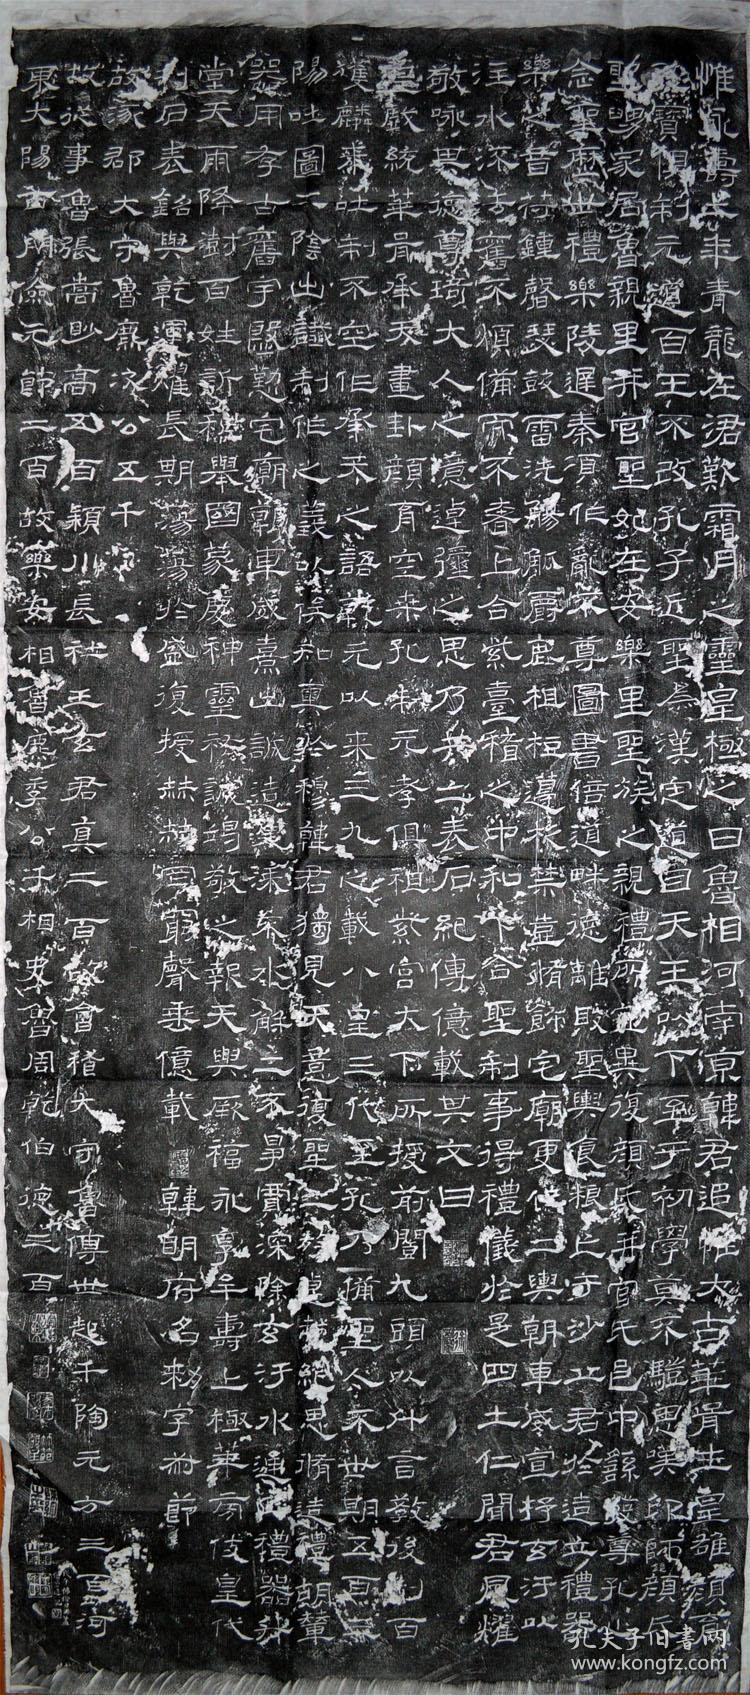 惟永壽二年青龍在涒歎霜月之靈皇極之日魯相河南京韓君追惟大古華胥生皇雄顏育
寶俱制元道百王不改孔子近聖為漢定道自天王以下至于初學莫不驥思嘆卬師顏氏
聖舅家居魯親里并官聖妃在安樂里聖族之親禮所宜異復顏氏并官氏邑中繇發尊孔心
念聖歷世禮樂陵遲秦項作亂不尊圖書倍道畔德離敗聖輿食糧亡于沙丘君於造立禮器
樂之音符鍾磬瑟鼓雷洗觴觚爵鹿柤梪籩柉禁壺脩飾宅廟更作二輿朝車威宣抒玄汙以
注水流法舊不煩備而不奢上合紫臺稽之中和下合聖制事得禮儀於是四方士仁聞君風燿
敬咏其德尊琦大人之意逴彌之思乃共立表石紀傳億載其文曰
皇戲統華胥承天畫卦顏育空桑孔制元孝俱祖紫宮大一所授前闓九頭以什言教後制百王
獲麟來吐制不空作承天之語乾元以來三九之載八皇三代至孔乃備聖人不世期五百載三
陽吐圖二陰出讖制作之義以俟知奧於穆韓君獨見天意復聖二族逴越絕思脩造禮樂胡輦
器用存古舊宇殷勤宅廟朝車威熹出誠造更漆不水解工不爭賈深除玄汙水通四注禮器升
堂天雨降澍百姓訢和舉國蒙慶神靈祐誠竭敬之報天與厥福永享牟壽上極華紫旁伎皇代
刊石表銘與乾運燿長期蕩蕩於盛復授赫赫罔窮聲垂億載 韓明府名敕字叔節
故涿郡大守魯麃次公五千
故從事魯張嵩眇高五百 潁川長社王玄君真二百 故會稽大守魯傅世起千 陶元方三百 河
東大陽西門儉元節二百 故樂安相魯麃季公千 相史魯周乾伯德三百
孔夫子旧書网
www.kongfz.com